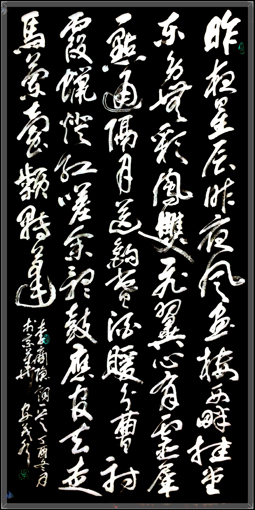 昨夜星辰昨夜風畫樓西畔桂堂
東身無彩鳳雙飛翼心有靈犀
一點通隔座送鈎春酒暖分曹射
覆蠟燈紅嗟余聽鼓應官去走
馬蘭臺類轉蓬
李商隱詞一首丁酉冬月
於京華